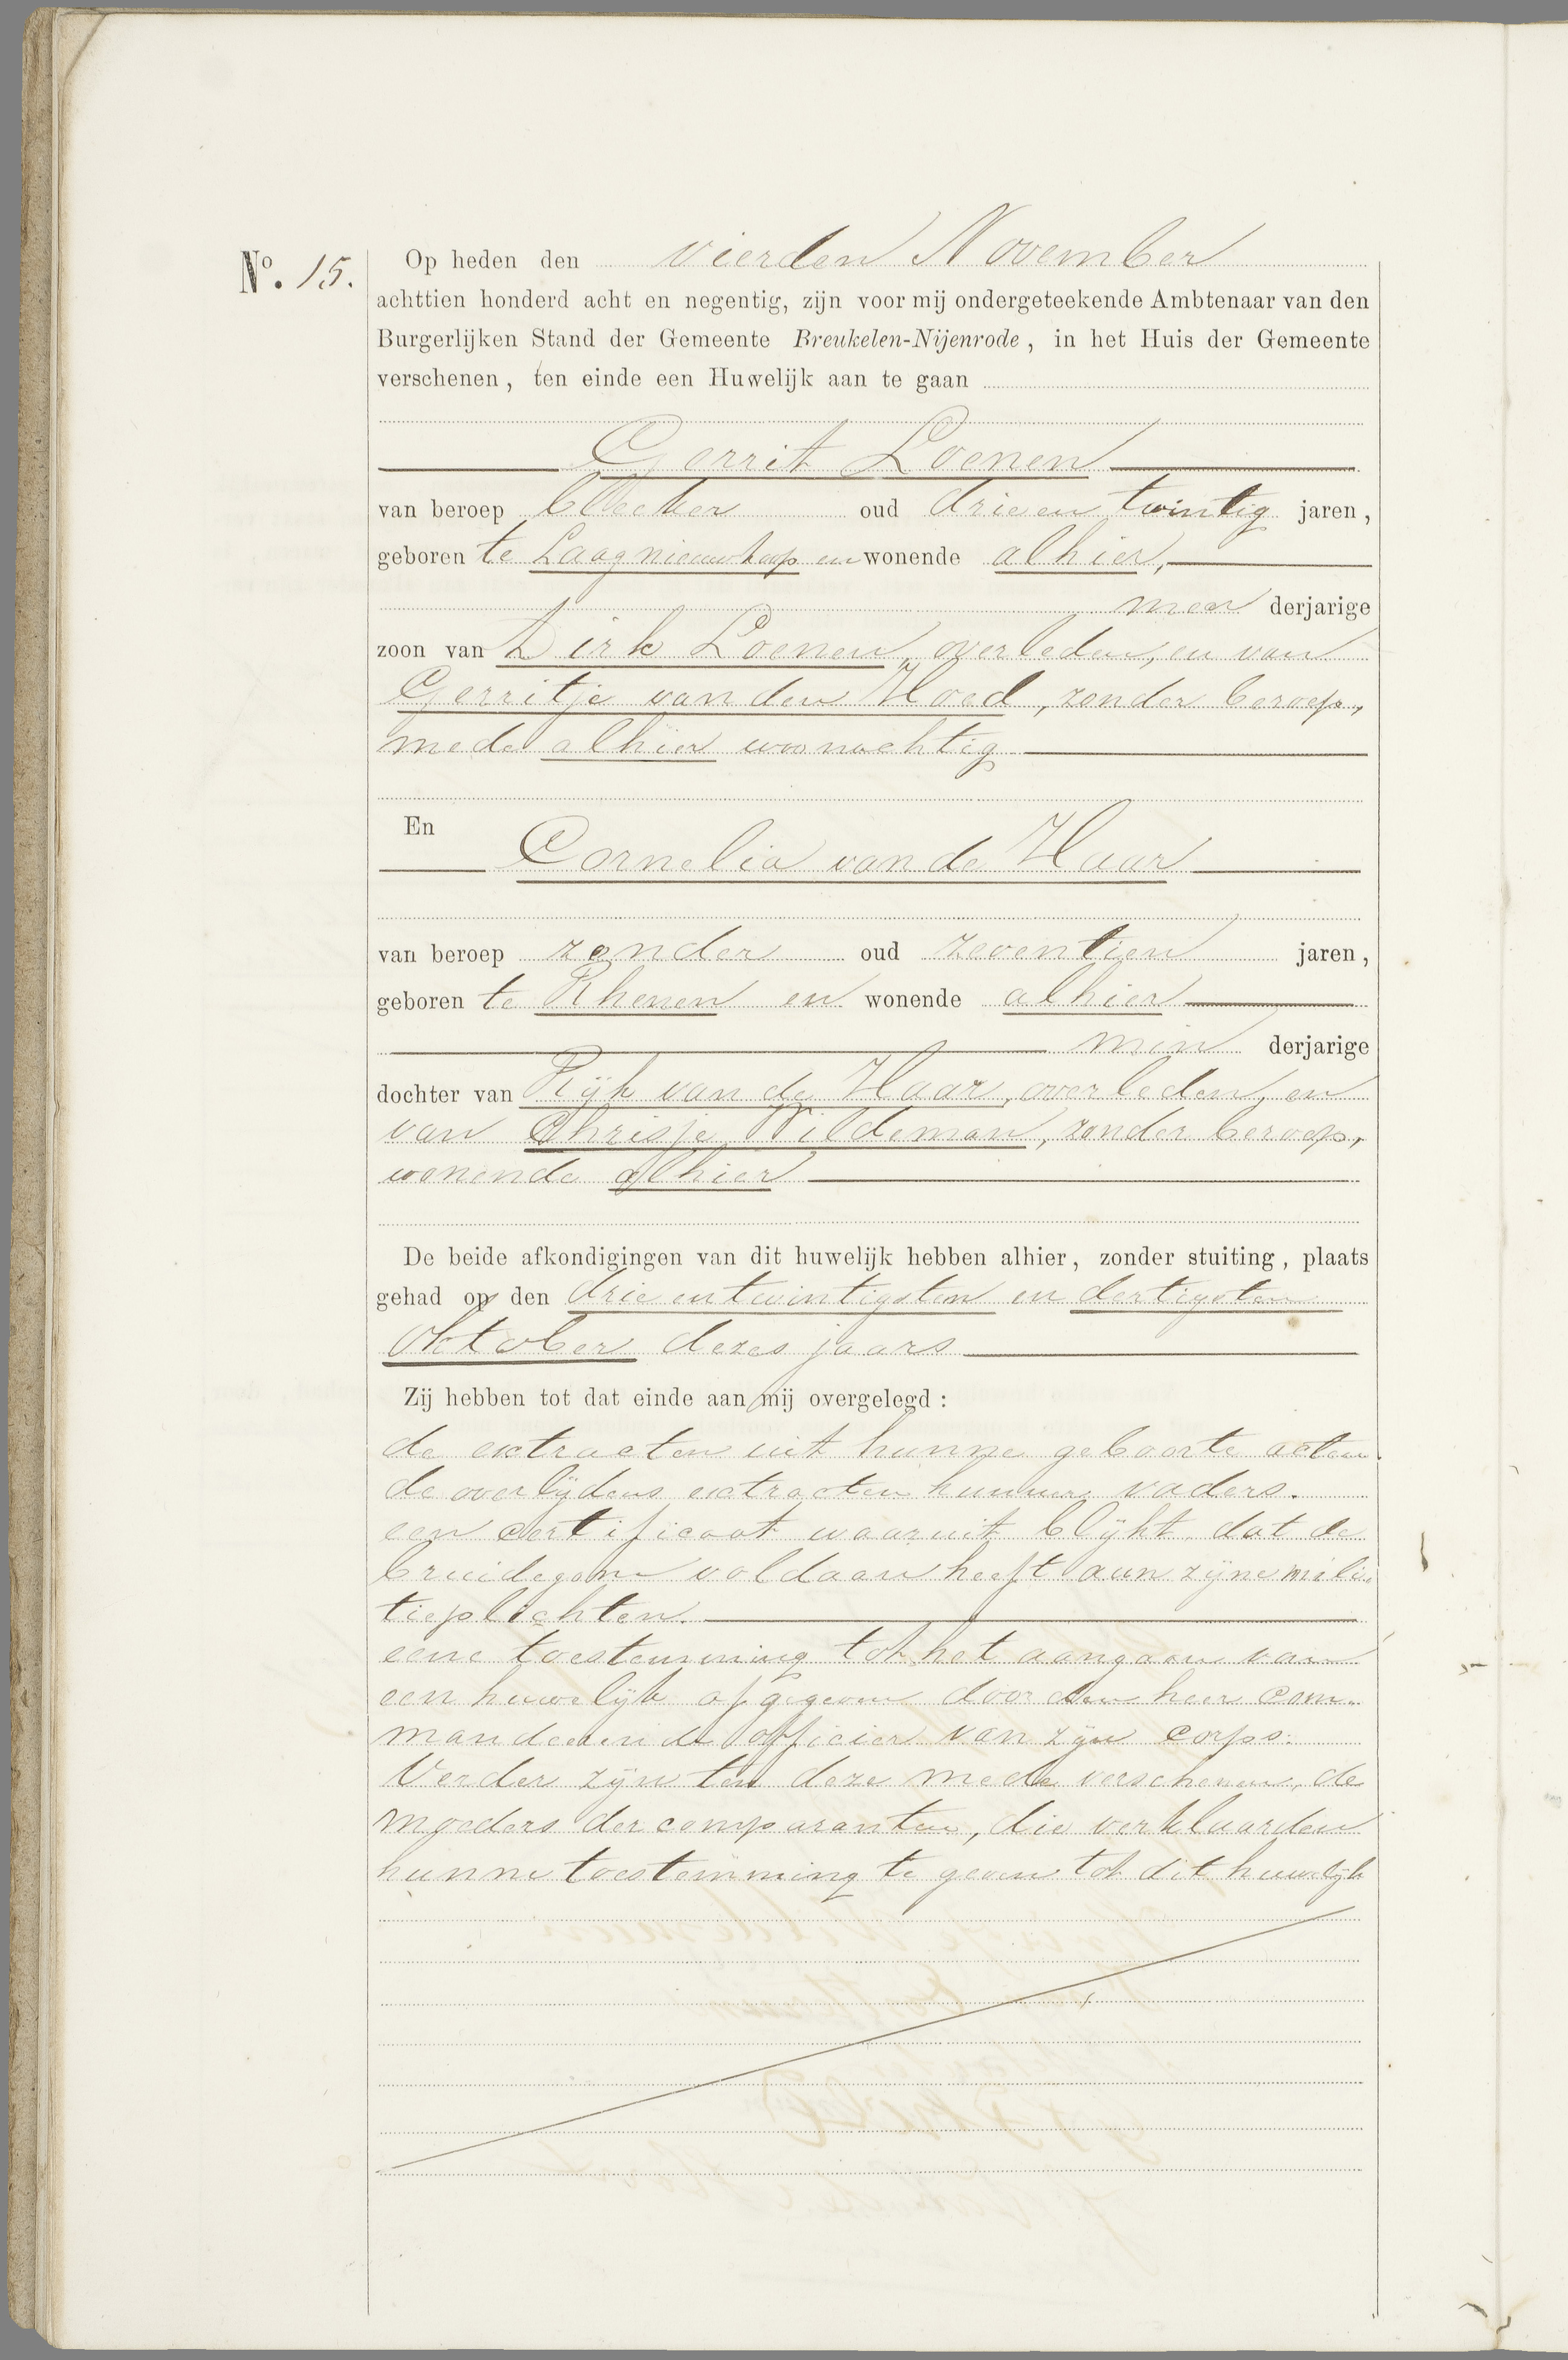 No. 15.
Op heden den vierden November
achttien honderd acht en negentig, zijn voor mij ondergeteekende Ambtenaar van den
Burgerlijken Stand der Gemeente Breukelen-Nijenrode, in het Huis der Gemeente
verschenen, ten einde een Huwelijk aan te gaan
Gerrit Loenen
van beroep oud drieen twintig jaren,
geboren te Laagnieuwkoop en wonende alhier,
meer derjarige
zoon van Dirk Loenen, overleden, en van
Gerritje van den Hoed, zonder beroep,
mede alhier woonachtig
En
Cornelia van de Haar
van beroep zonder oud zeventien jaren,
geboren te Rhenen en wonende alhier
min derjarige
dochter van Rijk van de Haar, overleden, en
van Chrisje Wildeman, zonder beroep,
wonende alhier
De beide afkondigingen van dit huwelijk hebben alhier, zonder stuiting, plaats
gehad op den drie entwintigsten en dertigsten
Oktober dezes jaars
Zij hebben tot dat einde aan mij overgelegd:
de extracten uit hunne geboorte acten.
de overlijdens extracten hunner vaders.
een certificaat waaruit blijkt, dat de
bruidegom voldaan heeft aan zijne mili
tieplichten.
eene toestemming tot het aangaan van
een huwelijk afgegeven door den heer com-
mandeerende officier van zijn corps.
Verder zijn ten deze mede verschenen, de
moeders der comparanten, die verklaarden
hunne toestemming te geven tot dit huwelijk